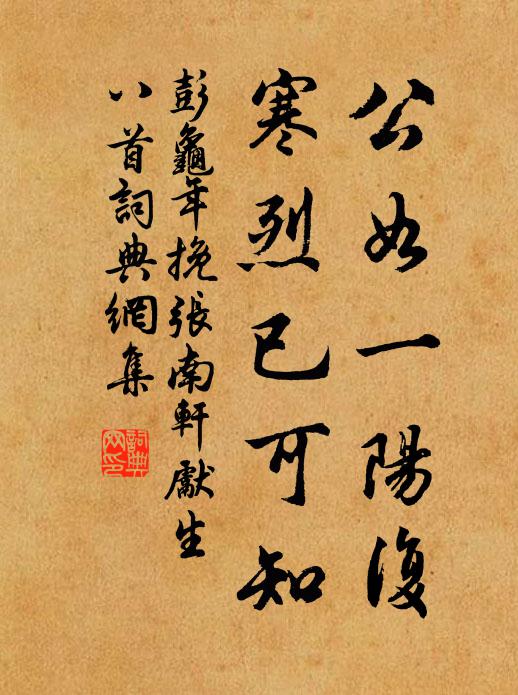 公如一陽復
寒烈已可知
彭龜年挽張南軒獻生
八首詞典網集
詞典网印